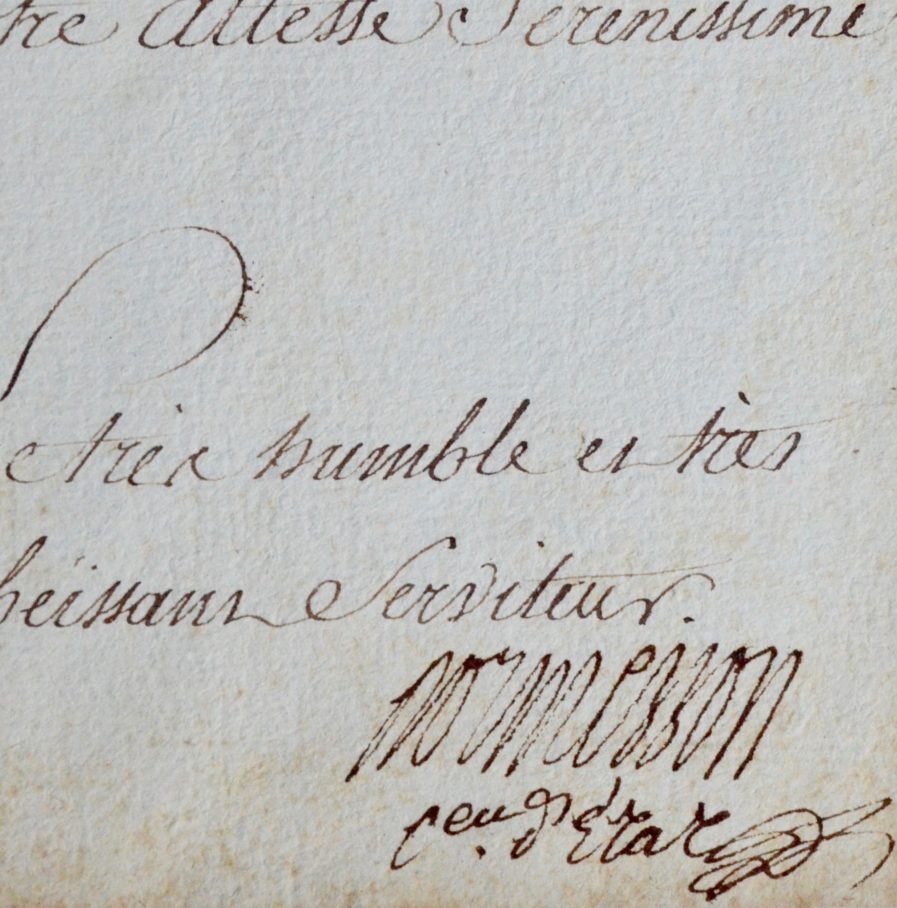 tre Altesse Serenissime
tres humble et très
beissant Serviteur.
normesson
cen d'Etat